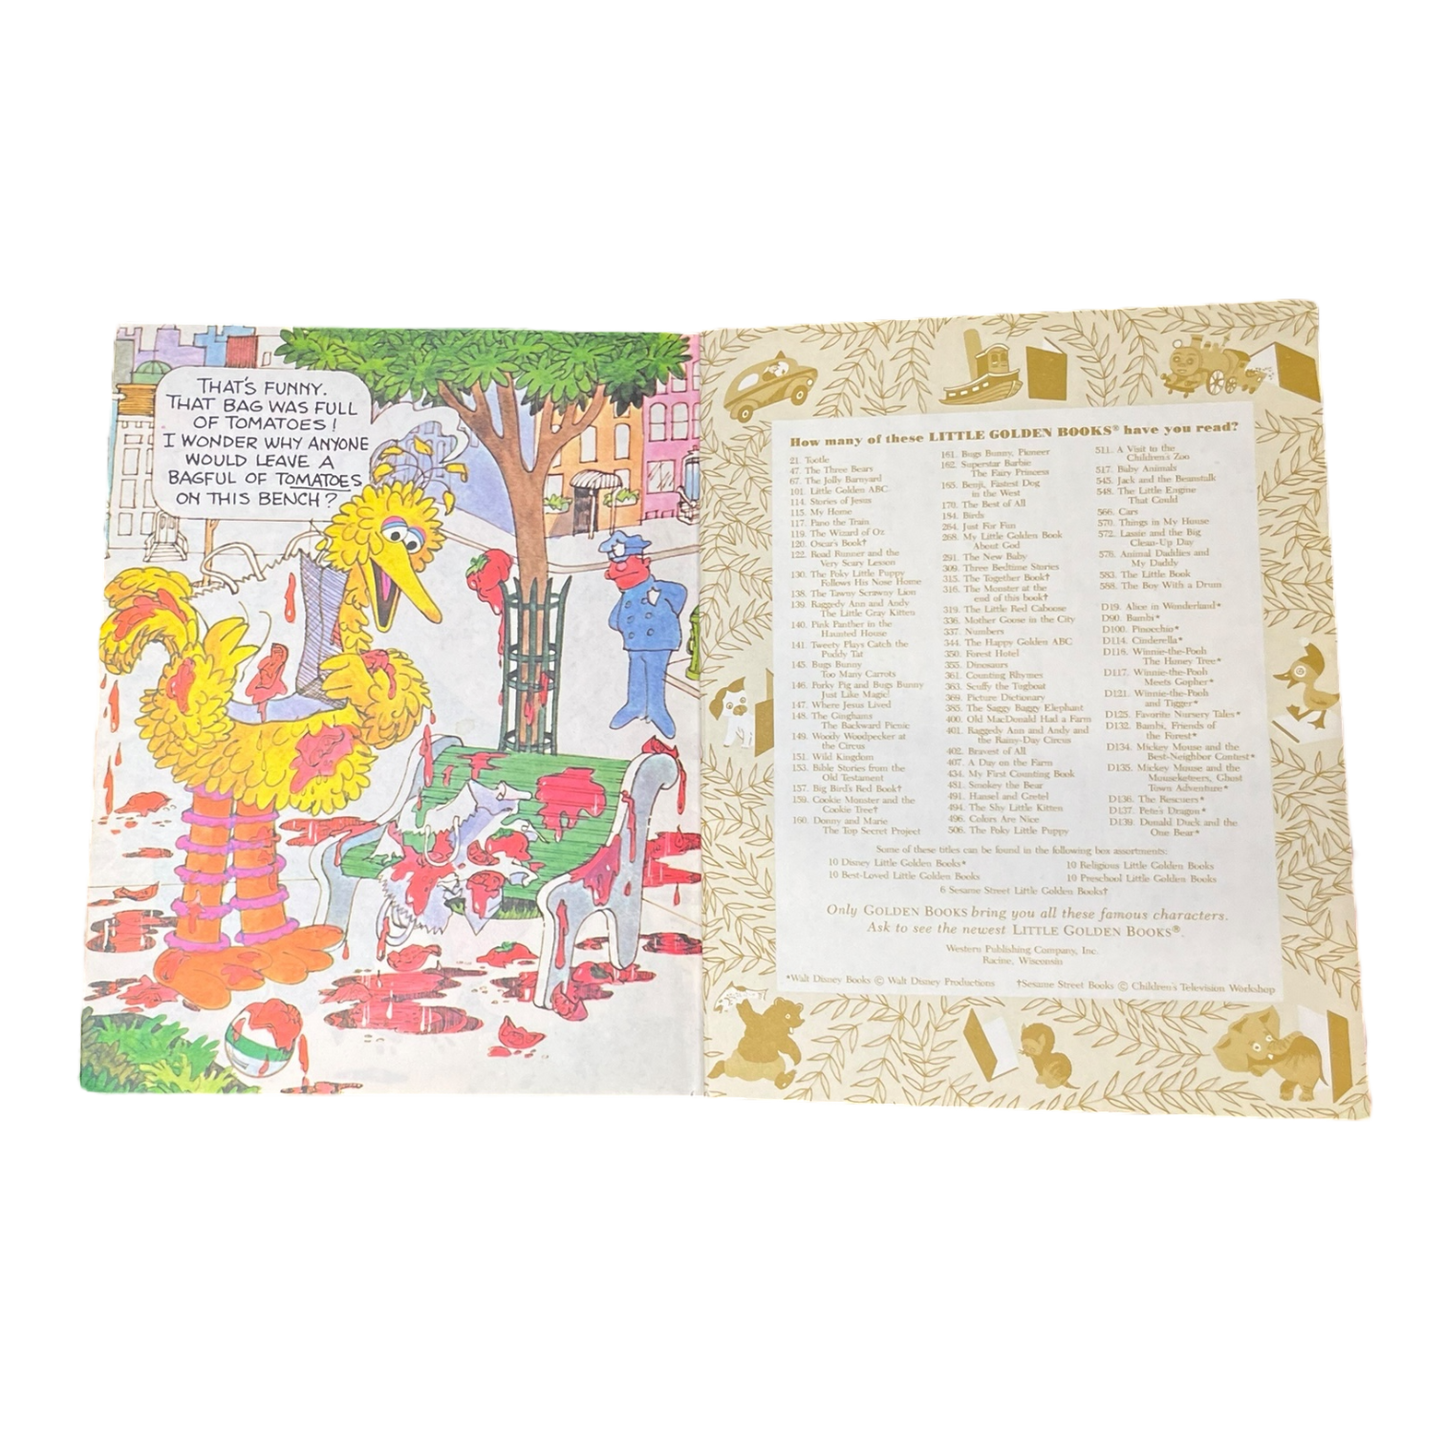 THAT'S FUNNY.
THAT BAG WAS FULL
OF TOMATOES!
I WONDER WHY ANYONE
WOULD LEAVE A
BAGFUL OF TOMATOES
ON THIS BENCH?
How many of these LITTLE GOLDEN BOOKS® have you read?
21. Tootle
47. The Three Bears
67. The Jolly Barnyard
101. Little Golden ABC
114. Stories of Jesus
115. My Home
117. Pano the Train
119. The Wizard of Oz
120. Oscar's Book†
122. Road Runner and the
Very Scary Lesson
130. The Poky Little Puppy
Follows His Nose Home
138. The Tawny Scrawny Lion
139. Raggedy Ann and Andy
The Little Gray Kitten
140. Pink Panther in the
Haunted House
141. Tweety Plays Catch the
Puddy Tat
145. Bugs Bunny
Too Many Carrots
146. Porky Pig and Bugs Bunny
Just Like Magic!
147. Where Jesus Lived
148. The Ginghams
The Backward Picnic
149. Woody Woodpecker at
the Circus
151. Wild Kingdom
153. Bible Stories from the
Old Testament
157. Big Bird's Red Book†
159. Cookie Monster and the
Cookie Tree†
160. Donny and Marie
The Top Secret Project
161. Bugs Bunny, Pioneer
162. Superstar Barbie
The Fairy Princess
165. Benji, Fastest Dog
in the West
170. The Best of All
184. Birds
264. Just For Fun
268. My Little Golden Book
About God
291. The New Baby
309. Three Bedtime Stories
315. The Together Book†
316. The Monster at the
end of this book†
319. The Little Red Caboose
336. Mother Goose in the City
337. Numbers
344. The Happy Golden ABC
350. Forest Hotel
355. Dinosaurs
361. Counting Rhymes
363. Scuffy the Tugboat
369. Picture Dictionary
385. The Saggy Baggy Elephant
400. Old MacDonald Had a Farm
401. Raggedy Ann and Andy and
the Rainy-Day Circus
402. Bravest of All
407. A Day on the Farm
434. My First Counting Book
481. Smokey the Bear
491. Hansel and Gretel
494. The Shy Little Kitten
496. Colors Are Nice
506. The Poky Little Puppy
511. A Visit to the
Children's Zoo
517. Baby Animals
545. Jack and the Beanstalk
548. The Little Engine
That Could
566. Cars
570. Things in My House
572. Lassie and the Big
Clean-Up Day
576. Animal Daddies and
My Daddy
583. The Little Book
588. The Boy With a Drum
D19. Alice in Wonderland*
D90. Bambi*
D100. Pinocchio*
D114. Cinderella*
D116. Winnie-the-Pooh
The Honey Tree*
D117. Winnie-the-Pooh
Meets Gopher*
D121. Winnie-the-Pooh
and Tigger*
D125. Favorite Nursery Tales*
D132. Bambi, Friends of
the Forest*
D134. Mickey Mouse and the
Best-Neighbor Contest*
D135. Mickey Mouse and the
Mouseketeers, Ghost
Town Adventure*
D136. The Rescuers*
D137. Pete's Dragon*
D139. Donald Duck and the
One Bear*
Some of these titles can be found in the following box assortments:
10 Disney Little Golden Books*
10 Religious Little Golden Books
10 Best-Loved Little Golden Books
10 Preschool Little Golden Books
6 Sesame Street Little Golden Books†
Only GOLDEN BOOKS bring you all these famous characters.
Ask to see the newest LITTLE GOLDEN BOOKS®
Western Publishing Company, Inc.
Racine, Wisconsin
*Walt Disney Books © Walt Disney Productions
†Sesame Street Books © Children's Television Workshop